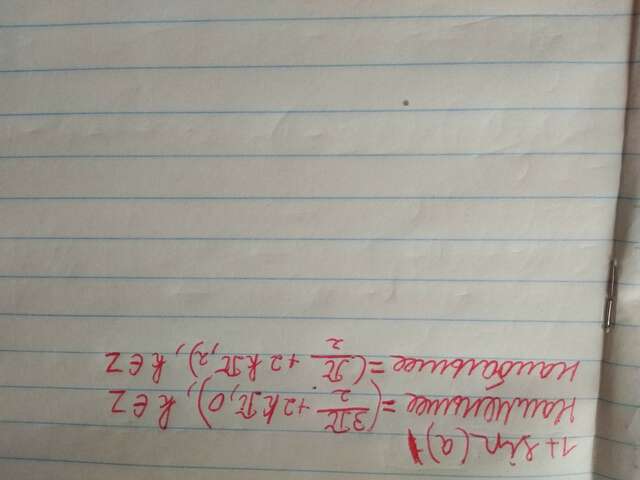 1+ sin(a)
наименьшее = (3π/2 + 2kπ, 0), k ∈ Z
наибольшее = (π/2 + 2kπ, 2), k ∈ Z